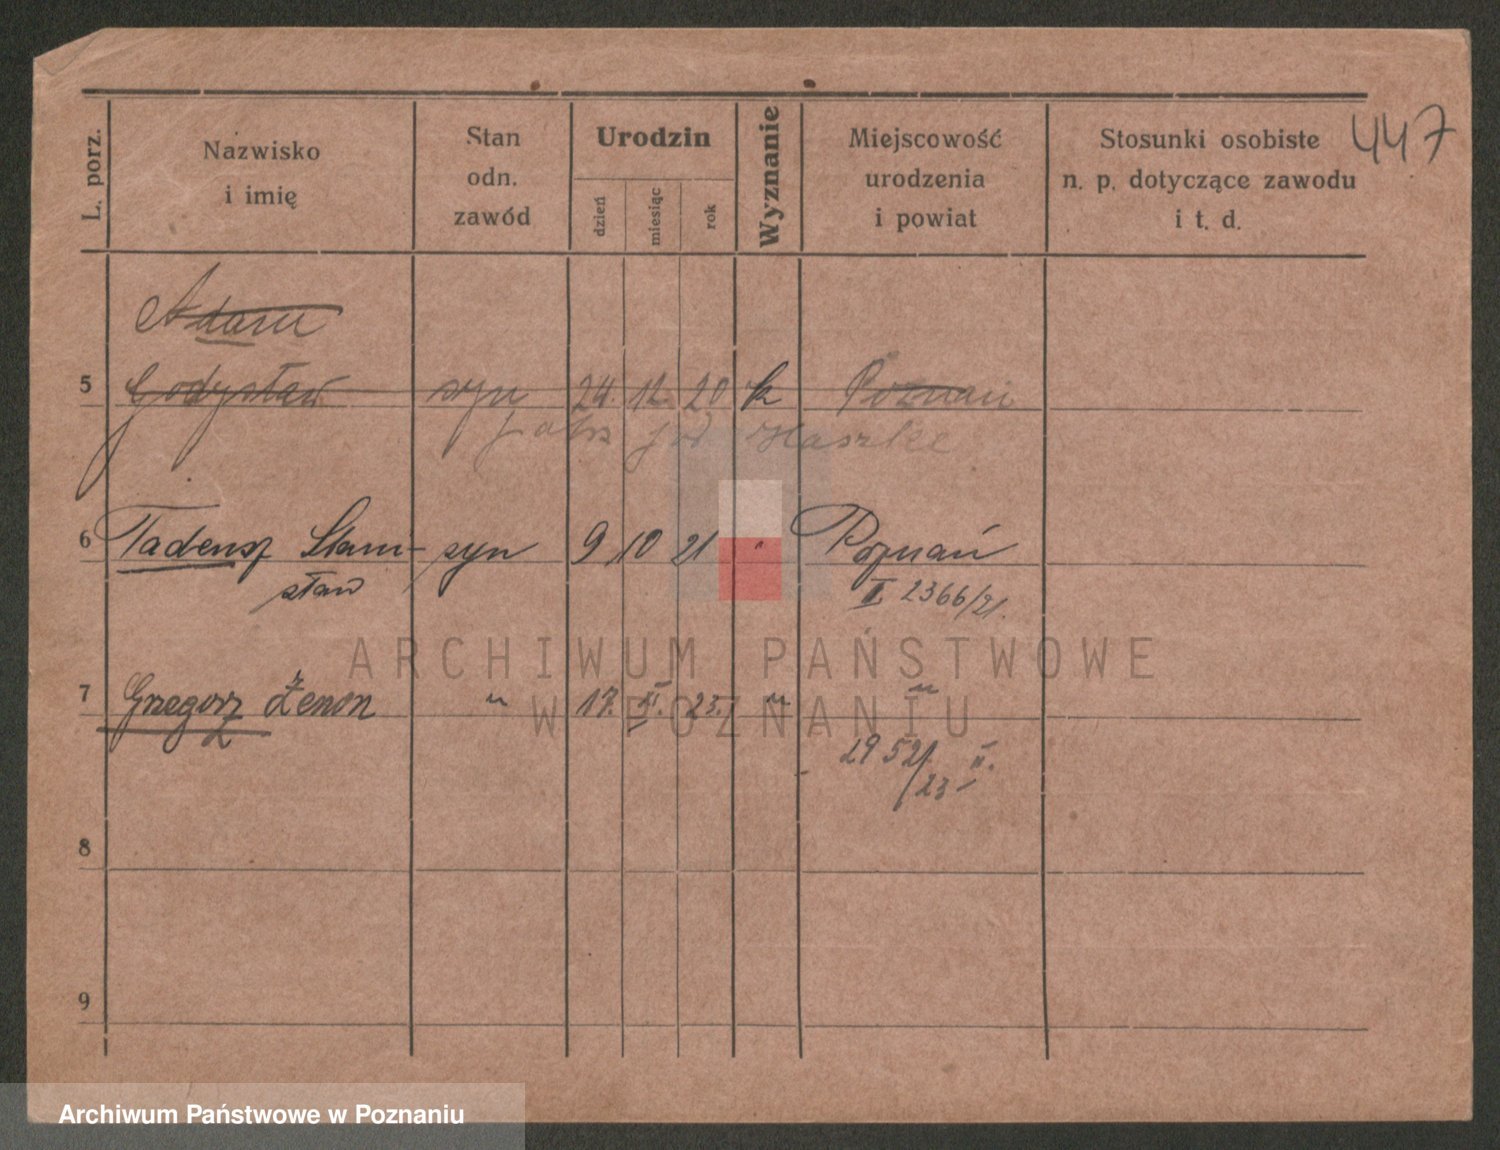 447
L. porz. Nazwisko i imię Stan odn. zawód Urodzin dzień miesiąc rok Wyznanie Miejscowość urodzenia i powiat Stosunki osobiste n. p. dotyczące zawodu i t. d.
Adam
5 syn 24. 12. 20 k Poznań
6 Tadeusz Stani- syn 9 10 21 " Poznań
sław II 2366/21.
7 Grzegorz Zenon " 17. 23. " "
2952/23 II.
8
9
ARCHIWUM PAŃSTWOWE
W POZNANIU
Archiwum Państwowe w Poznaniu